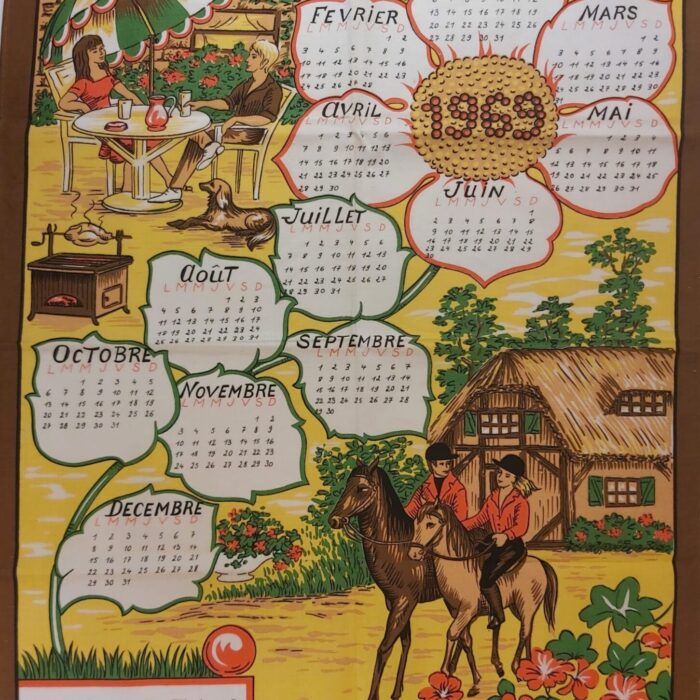 13 14 15 16 17 18 19
20 21 22 23 24 25 26
27 28 29 30 31
FÉVRIER
L M M J V S D
1 2
3 4 5 6 7 8 9
10 11 12 13 14 15 16
17 18 19 20 21 22 23
24 25 26 27 28
MARS
L M M J V S D
1 2
3 4 5 6 7 8 9
10 11 12 13 14 15 16
17 18 19 20 21 22 23
24 25 26 27 28 29 30
31
1969
AVRIL
L M M J V S D
1 2 3 4 5 6
7 8 9 10 11 12 13
14 15 16 17 18 19 20
21 22 23 24 25 26 27
28 29 30
MAI
L M M J V S D
1 2 3 4
5 6 7 8 9 10 11
12 13 14 15 16 17 18
19 20 21 22 23 24 25
26 27 28 29 30 31
JUIN
L M M J V S D
1
2 3 4 5 6 7 8
9 10 11 12 13 14 15
16 17 18 19 20 21 22
23 24 25 26 27 28 29
30
JUILLET
L M M J V S D
1 2 3 4 5 6
7 8 9 10 11 12 13
14 15 16 17 18 19 20
21 22 23 24 25 26 27
28 29 30 31
AOÛT
L M M J V S D
1 2 3
4 5 6 7 8 9 10
11 12 13 14 15 16 17
18 19 20 21 22 23 24
25 26 27 28 29 30 31
SEPTEMBRE
L M M J V S D
1 2 3 4 5 6 7
8 9 10 11 12 13 14
15 16 17 18 19 20 21
22 23 24 25 26 27 28
29 30
OCTOBRE
L M M J V S D
1 2 3 4 5
6 7 8 9 10 11 12
13 14 15 16 17 18 19
20 21 22 23 24 25 26
27 28 29 30 31
NOVEMBRE
L M M J V S D
1 2
3 4 5 6 7 8 9
10 11 12 13 14 15 16
17 18 19 20 21 22 23
24 25 26 27 28 29 30
DECEMBRE
L M M J V S D
1 2 3 4 5 6 7
8 9 10 11 12 13 14
15 16 17 18 19 20 21
22 23 24 25 26 27 28
29 30 31